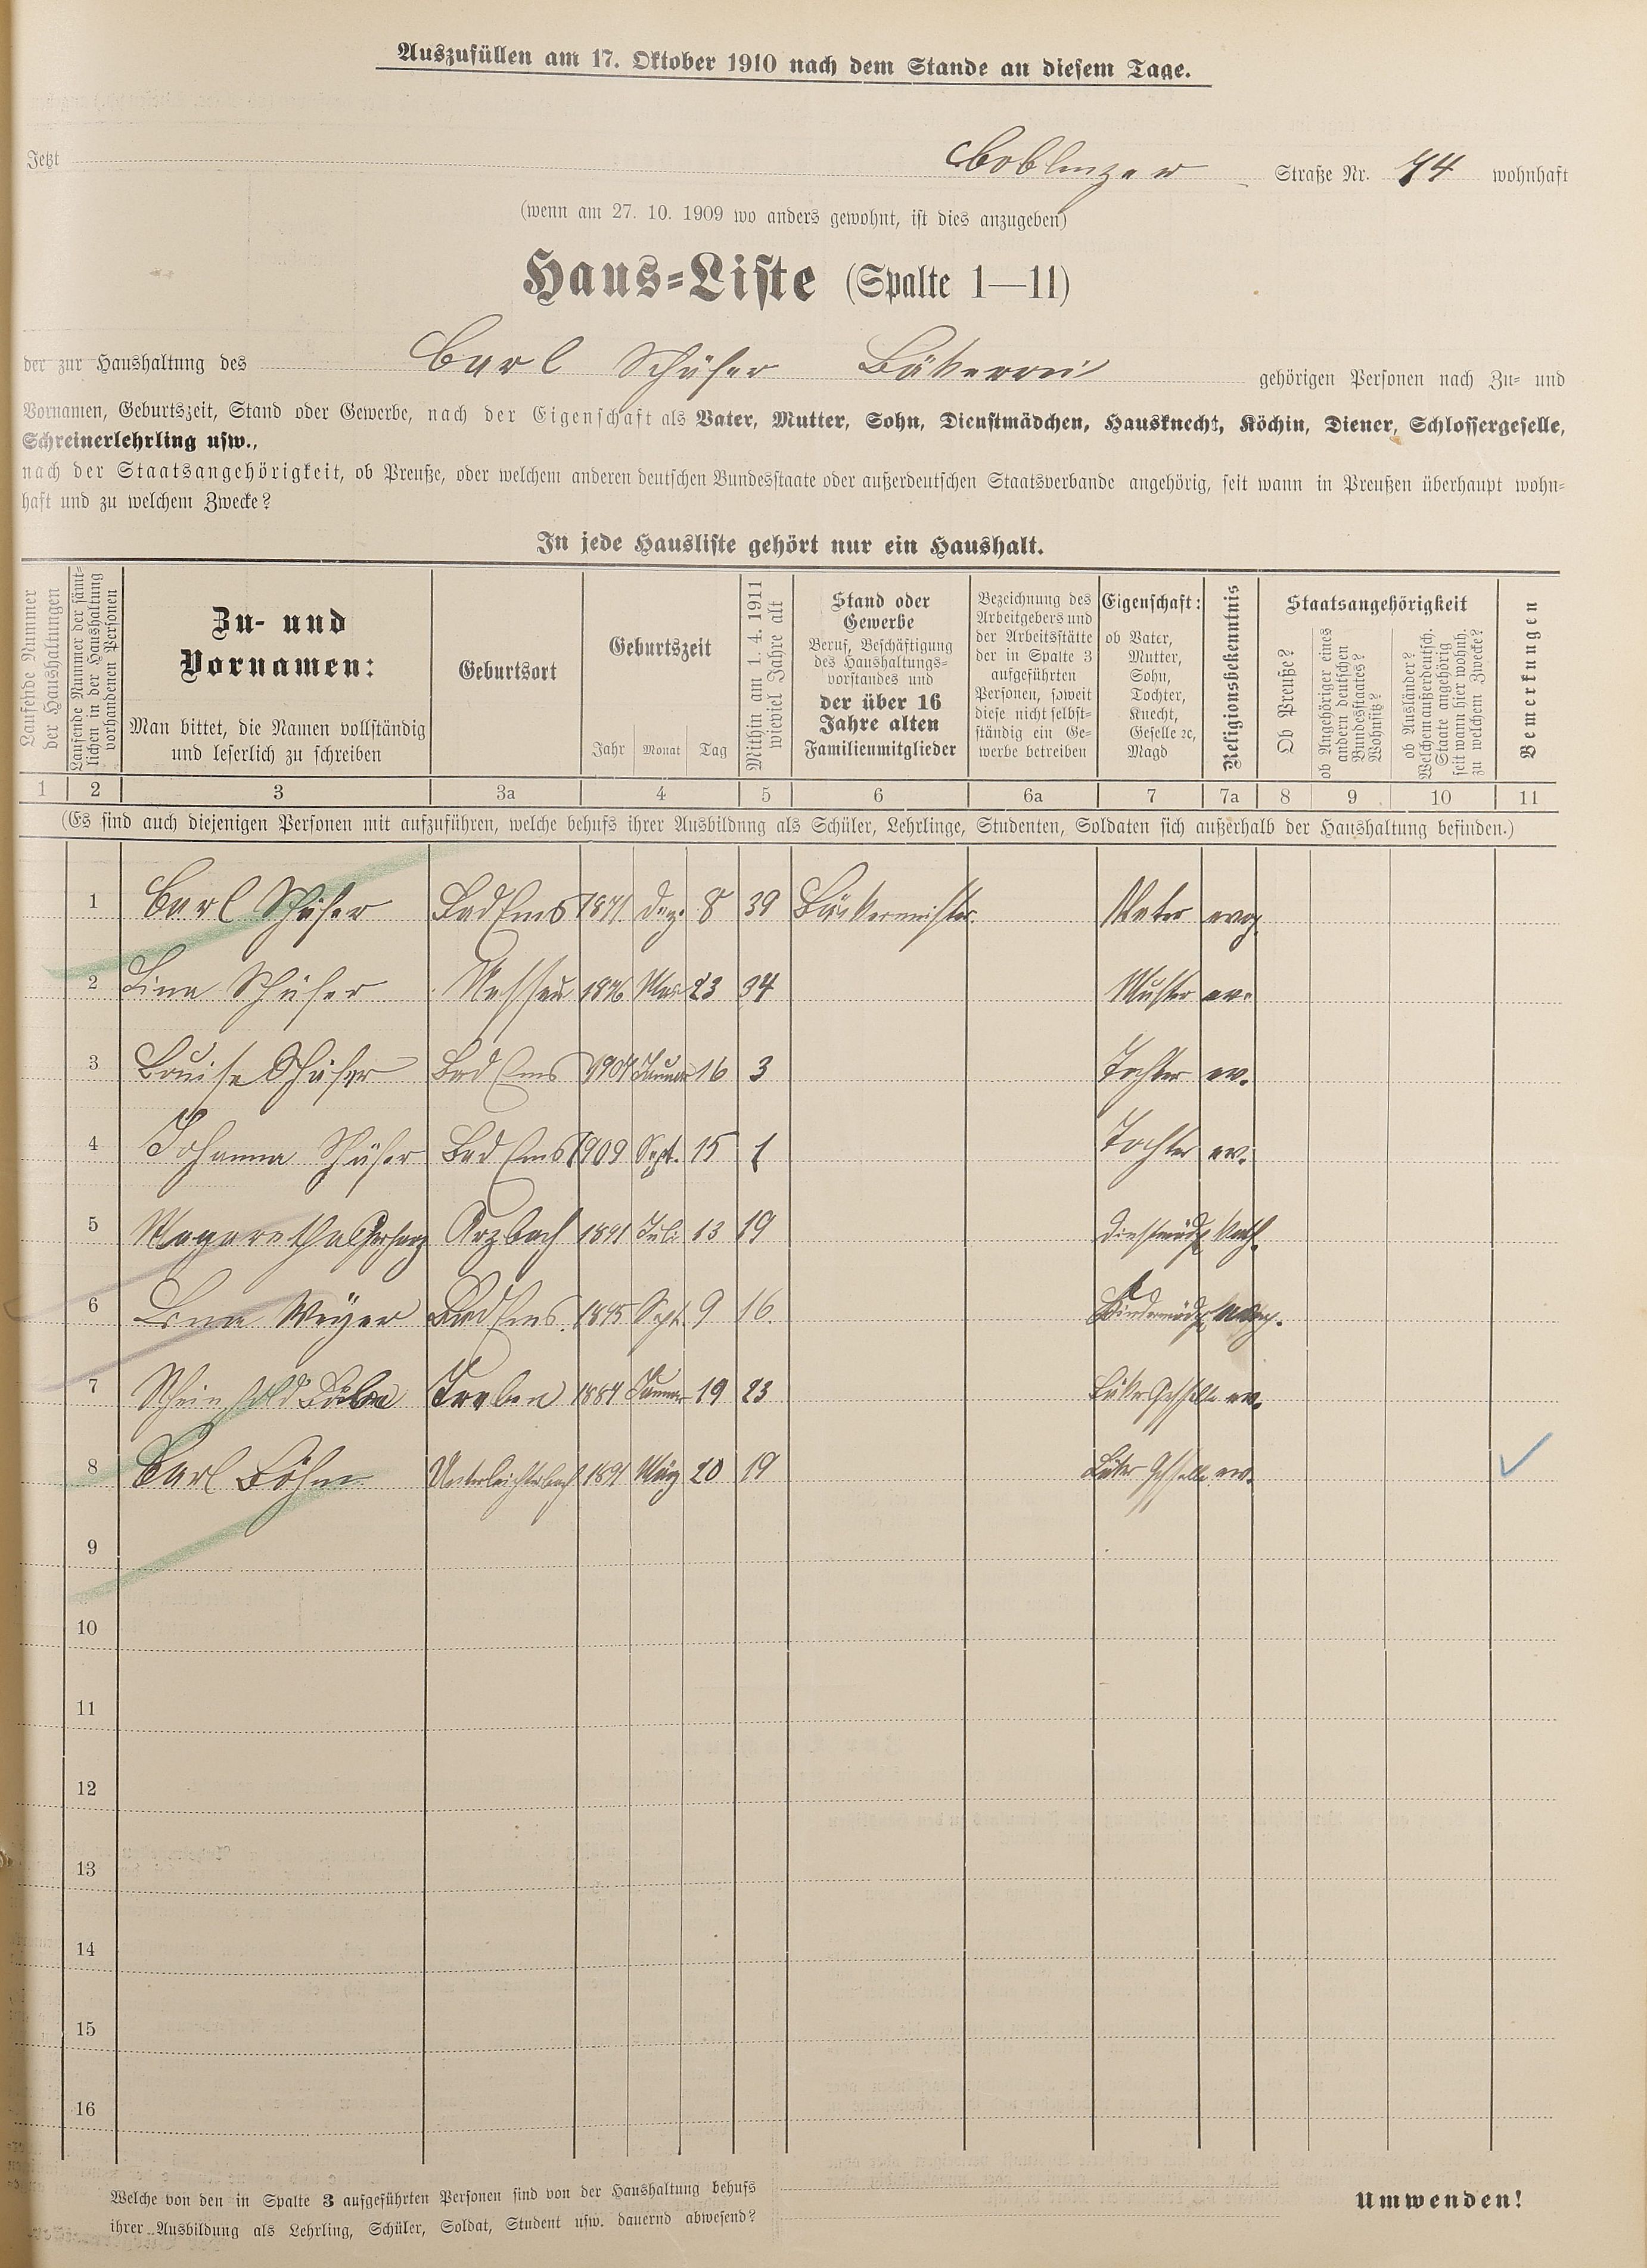 Auszufüllen am 17. Oktober 1910 nach dem Stande an diesem Tage.
Jetzt Coblenzer Straße Nr. 44 wohnhaft
(wenn am 27. 10. 1909 wo anders gewohnt, ist dies anzugeben)
Haus=Liste (Spalte 1—11)
der zur Haushaltung des Carl Schäfer Bäkerei gehörigen Personen nach Zu= und
Vornamen, Geburtszeit, Stand oder Gewerbe, nach der Eigenschaft als Vater, Mutter, Sohn, Dienstmädchen, Hausknecht, Köchin, Diener, Schlossergeselle,
Schreinerlehrling usw.,
nach der Staatsangehörigkeit, ob Preuße, oder welchem anderen deutschen Bundesstaate oder außerdeutschen Staatsverbande angehörig, seit wann in Preußen überhaupt wohn=
haft und zu welchem Zwecke?
In jede Hausliste gehört nur ein Haushalt.
Laufende Nummer
der Haushaltungen
Laufende Nummer der sämt=
lichen in der Haushaltung
vorhandenen Personen
Zu- und
Vornamen:
Man bittet, die Namen vollständig
und leserlich zu schreiben
Geburtsort
Geburtszeit
Jahr Monat Tag
Mithin am 1. 4. 1911
wieviel Jahre alt
Stand oder
Gewerbe
Beruf, Beschäftigung
des Haushaltungs=
vorstandes und
der über 16
Jahre alten
Familienmitglieder
Bezeichnung des
Arbeitgebers und
der Arbeitsstätte
der in Spalte 3
aufgeführten
Personen, soweit
diese nicht selbst=
ständig ein Ge=
werbe betreiben
Eigenschaft:
ob Vater,
Mutter,
Sohn,
Tochter,
Knecht,
Geselle ec,
Magd
Religionsbekenntnis
Staatsangehörigkeit
Ob Preuße?
ob Angehöriger eines
andern deutschen
Bundesstaates?
Wohnsitz?
ob Ausländer?
Welchem außerdeutsch.
Staate angehörig
seit wann hier wohnh.
zu welchen Zwecke?
Bemerkungen
1 2 3 3a 4 5 6 6a 7 7a 8 9 10 11
(Es sind auch diejenigen Personen mit aufzuführen, welche behufs ihrer Ausbildung als Schüler, Lehrlinge, Studenten, Soldaten sich außerhalb der Haushaltung befinden.)
1 Carl Schäfer Bad Ems 1871 Dez. 8 39 Bäckermeister Vater evg.
2 Lina Schäfer Nassau 1876 23 34 Mutter ev.
3 Louise Schäfer Bad Ems 1907 Januar 16 3 Tochter ev.
4 Johanna Schäfer Bad Ems 1909 Sept. 15 1 Tochter ev.
5 Magaretha Gerharz Arzbach 1891 Juli 13 19 Dienstmädch Kath.
6 Lina Weyer Bad Ems. 1895 Sept. 9 16. Kindermädch evang.
7 Reinhold Traben Januar 19 23 Bäker Geselle ev.
8 Carl Böhm 1891 März 20 19 Bäker Geselle ev.
9
10
11
12
13
14
15
16
Welche von den in Spalte 3 aufgeführten Personen sind von der Haushaltung behufs
ihrer Ausbildung als Lehrling, Schüler, Soldat, Student usw. dauernd abwesend?
Umwenden!